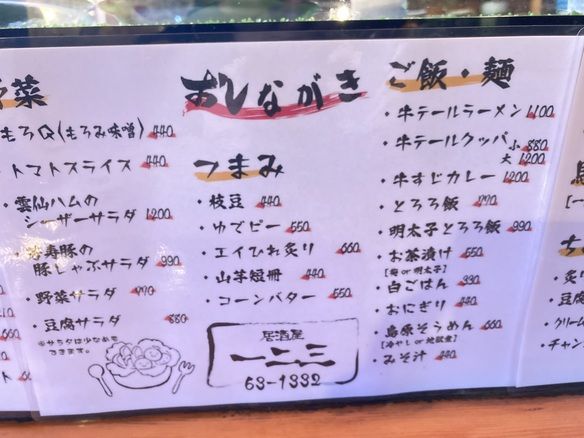 おしながき
菜
もろQ(もろみ味噌) 440
トマトスライス 440
雲仙ハムの
シーザーサラダ 1200
寿豚の
豚しゃぶサラダ 990
野菜サラダ 770
豆腐サラダ 880
※サラダは少なめも
できます。
つまみ
枝豆 440
ゆでピー 550
エイひれ炙り 660
山芋短冊 440
コーンバター 550
居酒屋
一二三
63-1332
ご飯・麺
牛テールラーメン 1100
牛テールクッパ 小 880
大 1200
牛すじカレー 1200
とろろ飯 770
明太子とろろ飯 990
お茶漬け 550
[梅or明太子]
白ごはん 330
おにぎり 440
島原そうめん 660
[冷やし or 地獄煮]
みそ汁 440